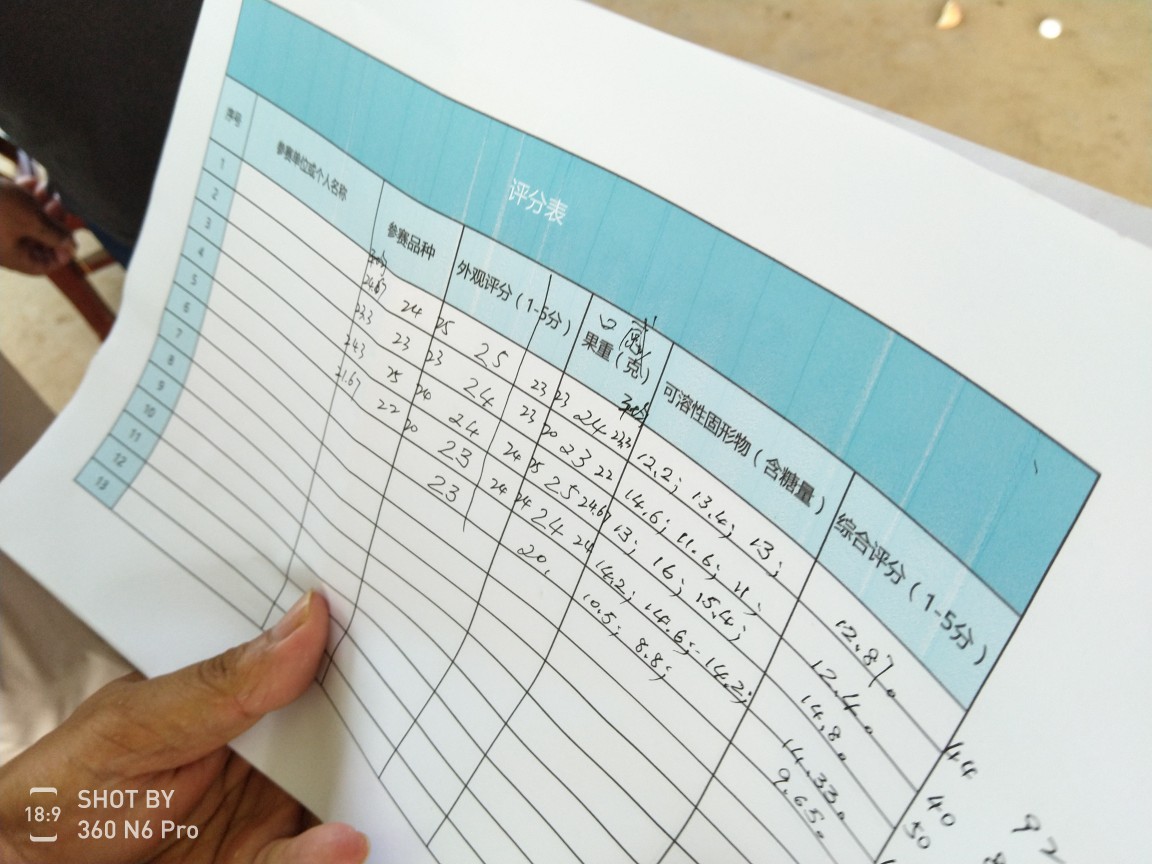 评分表
序号 参赛单位或个人名称 参赛品种 外观评分（1-5分） 果重（克） 可溶性固形物（含糖量） 综合评分（1-5分）
口感
1 24 25 25 23 23 24 23.3 12.2; 13.4; 13; 12.87。
2 24.67 23 23 24 23 20 23 22 14.6; 11.6; 11; 12.40
3 23.3 25 24 24 24 25 25 24.67 13; 16; 15.4; 14.80
4 24.3 22 20 23 24 24 24 24 14.2; 14.6; 14.2; 14.33。
5 21.67 23 20. 10.5; 8.8; 9.65。
6
7
8
9
10
11
12
13
44
40
50
18:9
SHOT BY
360 N6 Pro